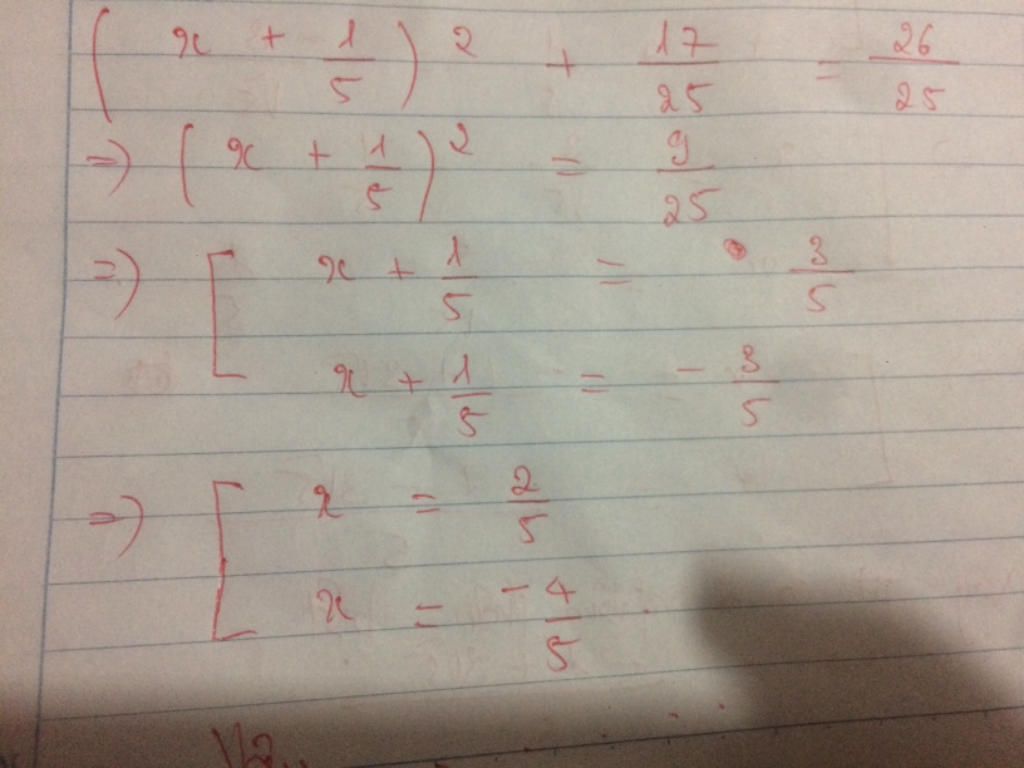 (x + 1/5)² + 17/25 = 26/25
=> (x + 1/5)² = 9/25
=> [ x + 1/5 = 3/5
x + 1/5 = - 3/5
=> [ x = 2/5
x = -4/5.